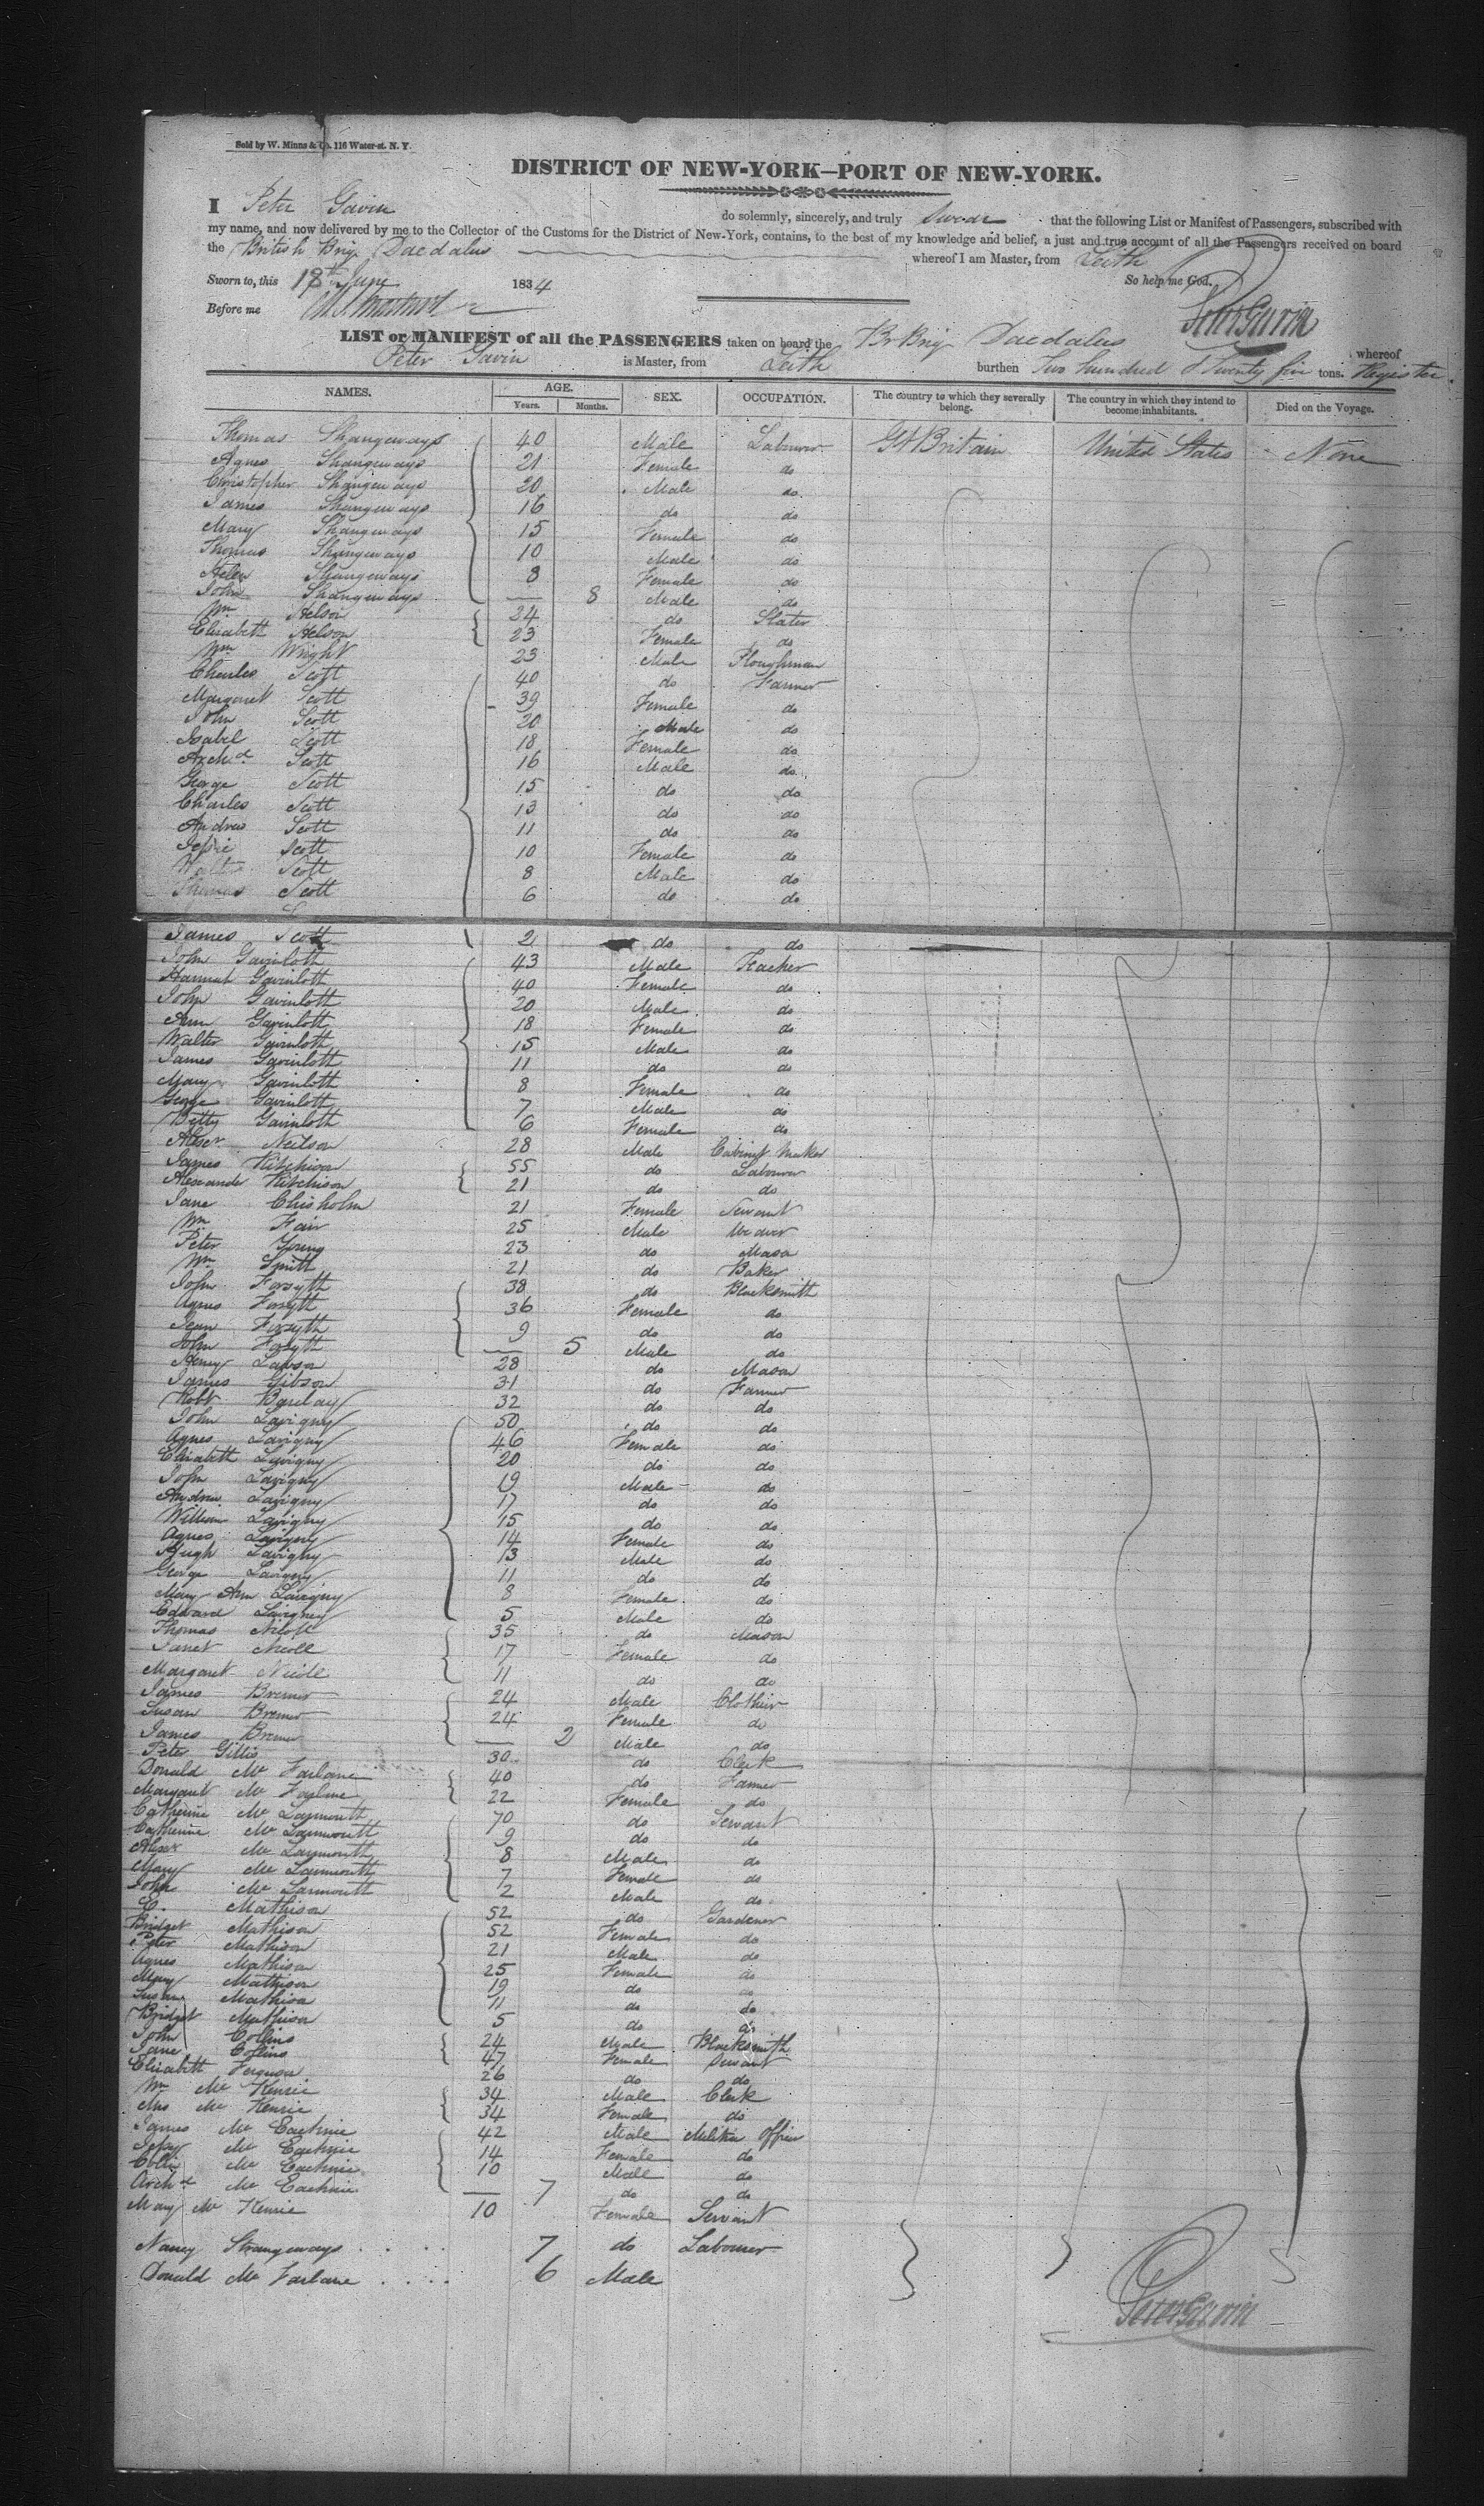 Sold by W. Minns & Co. 116 Water-st. N. Y.
DISTRICT OF NEW-YORK—PORT OF NEW-YORK.
I Peter Gavin do solemnly, sincerely, and truly swear that the following List or Manifest of Passengers, subscribed with
my name, and now delivered by me to the Collector of the Customs for the District of New-York, contains, to the best of my knowledge and belief, a just and true account of all the Passengers received on board
the British Brig Daedalus whereof I am Master, from Leith
Sworn to, this 18th June 1834 So help me God.
Before me Peter Gavin
LIST or MANIFEST of all the PASSENGERS taken on board the Br Brig Daedalus whereof
Peter Gavin is Master, from Leith burthen Two hundred & Twenty five tons. Register
NAMES. AGE. Years. Months. SEX. OCCUPATION. The country to which they severally belong. The country in which they intend to become inhabitants. Died on the Voyage.
Thomas Shangeways 40 Male Labourer Gt Britain United States None
Agnes Shangeways 21 Female do
Christopher Shangeways 20 Male do
James Shangeways 16 do do
Mary Shangeways 15 Female do
Thomas Shangeways 10 Male do
Helen Shangeways 8 Female do
John Shangeways — 8 Male do
Wm Nelson 24 do Slater
Elizabeth Nelson 23 Female do
Wm Wright 23 Male Ploughman
Charles Scott 40 do Farmer
Margaret Scott 39 Female do
John Scott 20 Male do
Isabel Scott 18 Female do
Archd Scott 16 Male do
George Scott 15 do do
Charles Scott 13 do do
Andrew Scott 11 do do
Jessie Scott 10 Female do
Walter Scott 8 Male do
Thomas Scott 6 do do
James Scott 2 do do
John Gavinloth 43 Male Teacher
Hannah Gavinloth 40 Female do
John Gavinloth 20 Male do
Ann Gavinloth 18 Female do
Walter Gavinloth 15 Male do
James Gavinloth 11 do do
Mary Gavinloth 8 Female do
George Gavinloth 7 Male do
Betty Gavinloth 6 Female do
Alexr Neilson 28 Male Cabinet Maker
James Kitchison 55 do Labourer
Alexander Kitchison 21 do do
Jane Chisholm 21 Female Servant
Wm Fair 25 Male Weaver
Peter Young 23 do Mason
Wm Smith 21 do Baker
John Forsyth 38 do Blacksmith
Agnes Forsyth 36 Female do
Jean Forsyth 9 do do
John Forsyth — 5 Male do
Henry Lawson 28 do Mason
James Gibson 31 do Farmer
Robt Barclay 32 do do
John Lavigny 50 do do
Agnes Lavigny 46 Female do
Elizabeth Lavigny 20 do do
John Lavigny 19 Male do
Andrew Lavigny 17 do do
William Lavigny 15 do do
Agnes Lavigny 14 Female do
Hugh Lavigny 13 Male do
George Lavigny 11 do do
Mary Ann Lavigny 8 Female do
Edward Lavigny 5 Male do
Thomas Nicoll 35 do Mason
Janet Nicoll 17 Female do
Margaret Nicoll 11 do do
James Bremer 24 Male Clothier
Susan Bremer 24 Female do
James Bremer — 2 Male do
Peter Gillis 30 do Clerk
Donald Mc Farlane 40 do Farmer
Margaret Mc Farlane 22 Female do
Catherine Mc Larmouth 70 do Servant
Catherine Mc Larmouth 9 do do
Alexr Mc Larmouth 8 Male do
Mary Mc Larmouth 7 Female do
John Mc Larmouth 2 Male do
Mathison 52 do Gardener
Bridget Mathison 52 Female do
Peter Mathison 21 Male do
Agnes Mathison 25 Female do
Mary Mathison 19 do do
Susan Mathison 11 do do
Bridget Mathison 5 do do
John Collins 24 Male Blacksmith
Jane Collins 47 Female Servant
Elizabeth Ferguson 26 do do
Wm Mc Kenzie 34 Male Clerk
Mrs Mc Kenzie 34 Female do
James Mc Eachnie 42 Male Officer
Mc Eachnie 14 Female do
Colin Mc Eachnie 10 Male do
Archd Mc Eachnie — 7 do do
Mary Mc Kenzie 10 Female Servant
Nancy Strangeways 7 do Labourer
Donald Mc Farlane 6 Male
Peter Gavin